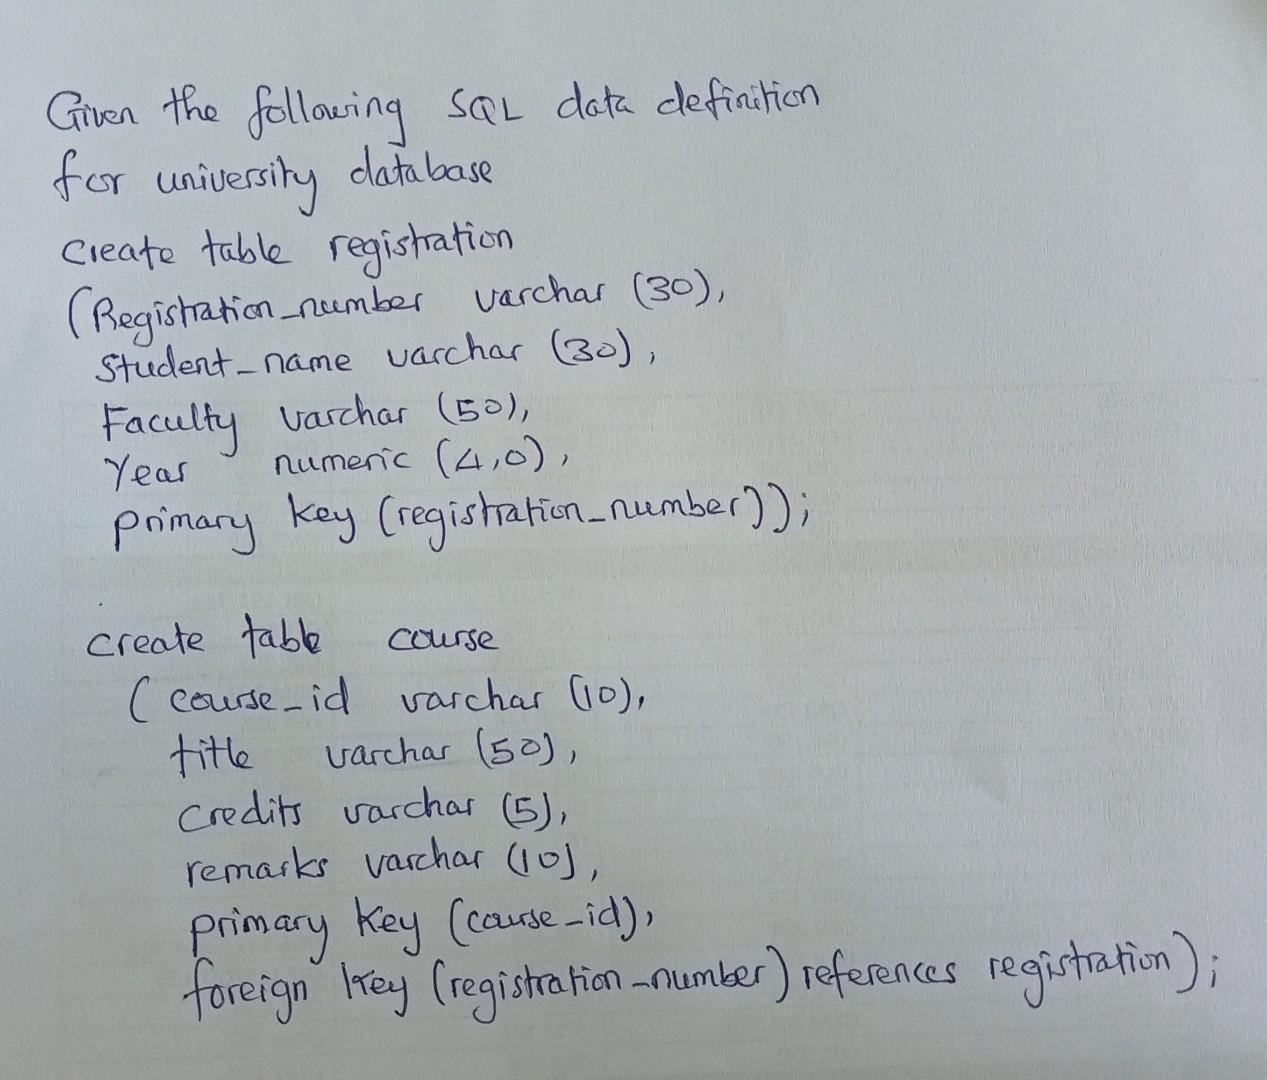 Given the following SQL data definition
for university database
Create table registration
(Registration_number varchar (30),
Student_name varchar (30),
Faculty varchar (50),
Year numeric (4,0),
primary key (registration_number));
create table course
(course_id varchar (10),
title varchar (50),
credits varchar (5),
remarks varchar (10),
primary key (course_id),
foreign key (registration_number) references registration);